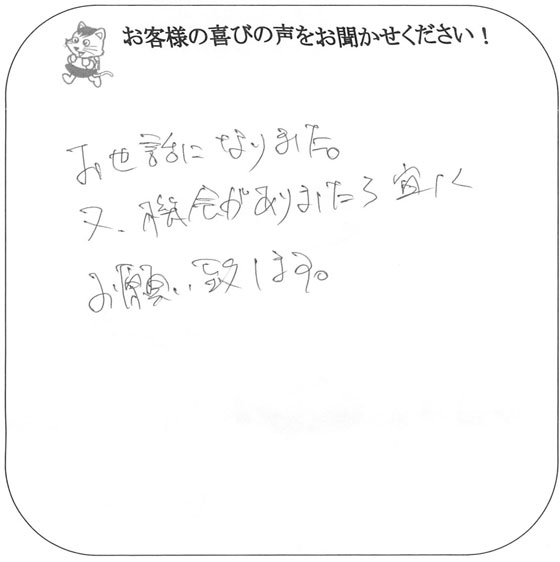 お客様の喜びの声をお聞かせください！
お世話になりました。
又、機会がありましたら宜しく
お願い致します。